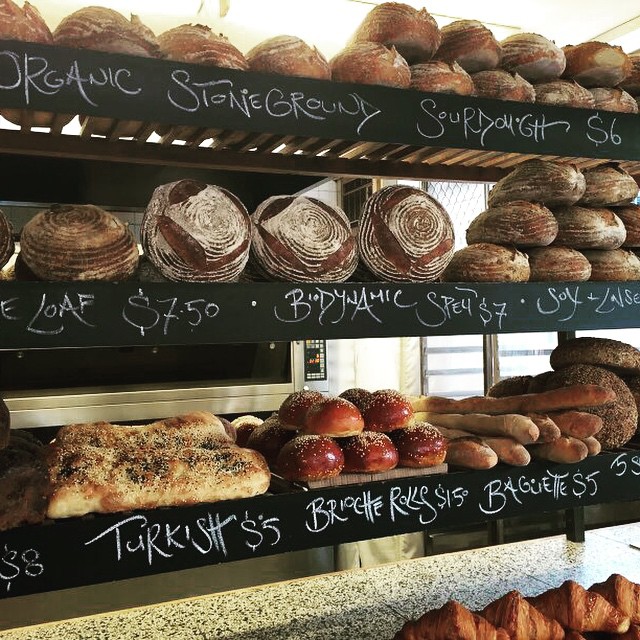 ORGANIC STONEGROUND SOURDOUGH $6
E LOAF $7.50 • BIODYNAMIC SPELT $7 • SOY + LINSE
$8 TURKISH $5 BRIOCHE ROLLS $1.50 BAGUETTE $5